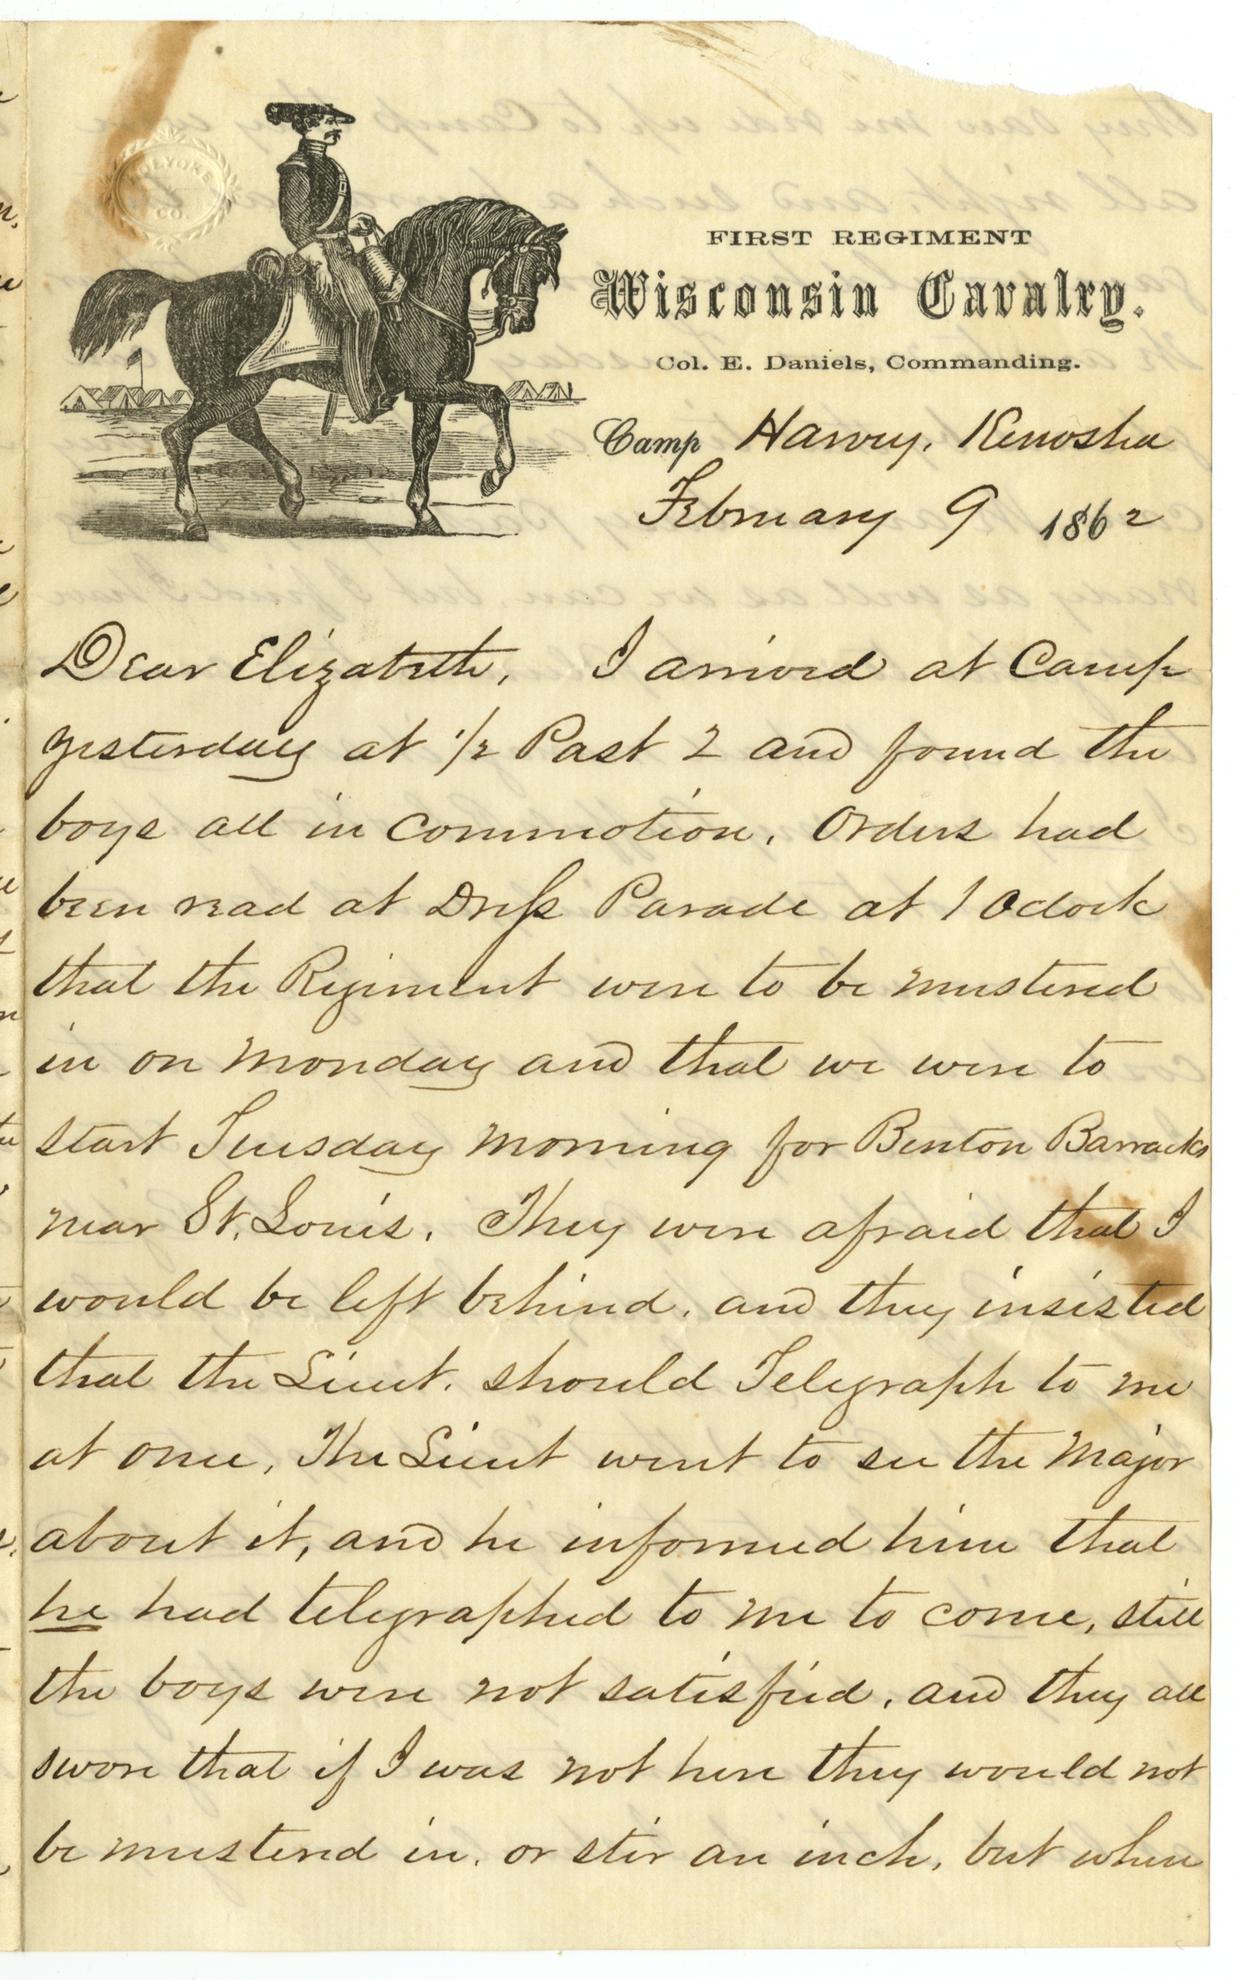 HOLYOKE
CO.
FIRST REGIMENT
Wisconsin Cavalry.
Col. E. Daniels, Commanding.
Camp Harvey, Kenosha
February 9 1862
Dear Elizabeth, I arrived at Camp
yesterday at 1/2 Past 2 and found the
boys all in commotion. Orders had
been read at Dress Parade at 1 Oclock
that the Regiment were to be mustered
in on Monday and that we were to
start Tuesday morning for Benton Barracks
near St. Louis. They were afraid that I
would be left behind, and they insisted
that the Lieut. should Telegraph to me
at once, The Lieut went to see the Major
about it, and he informed him that
he had telegraphed to me to come, still
the boys were not satisfied, and they all
swore that if I was not here they would not
be mustered in, or stir an inch, but when